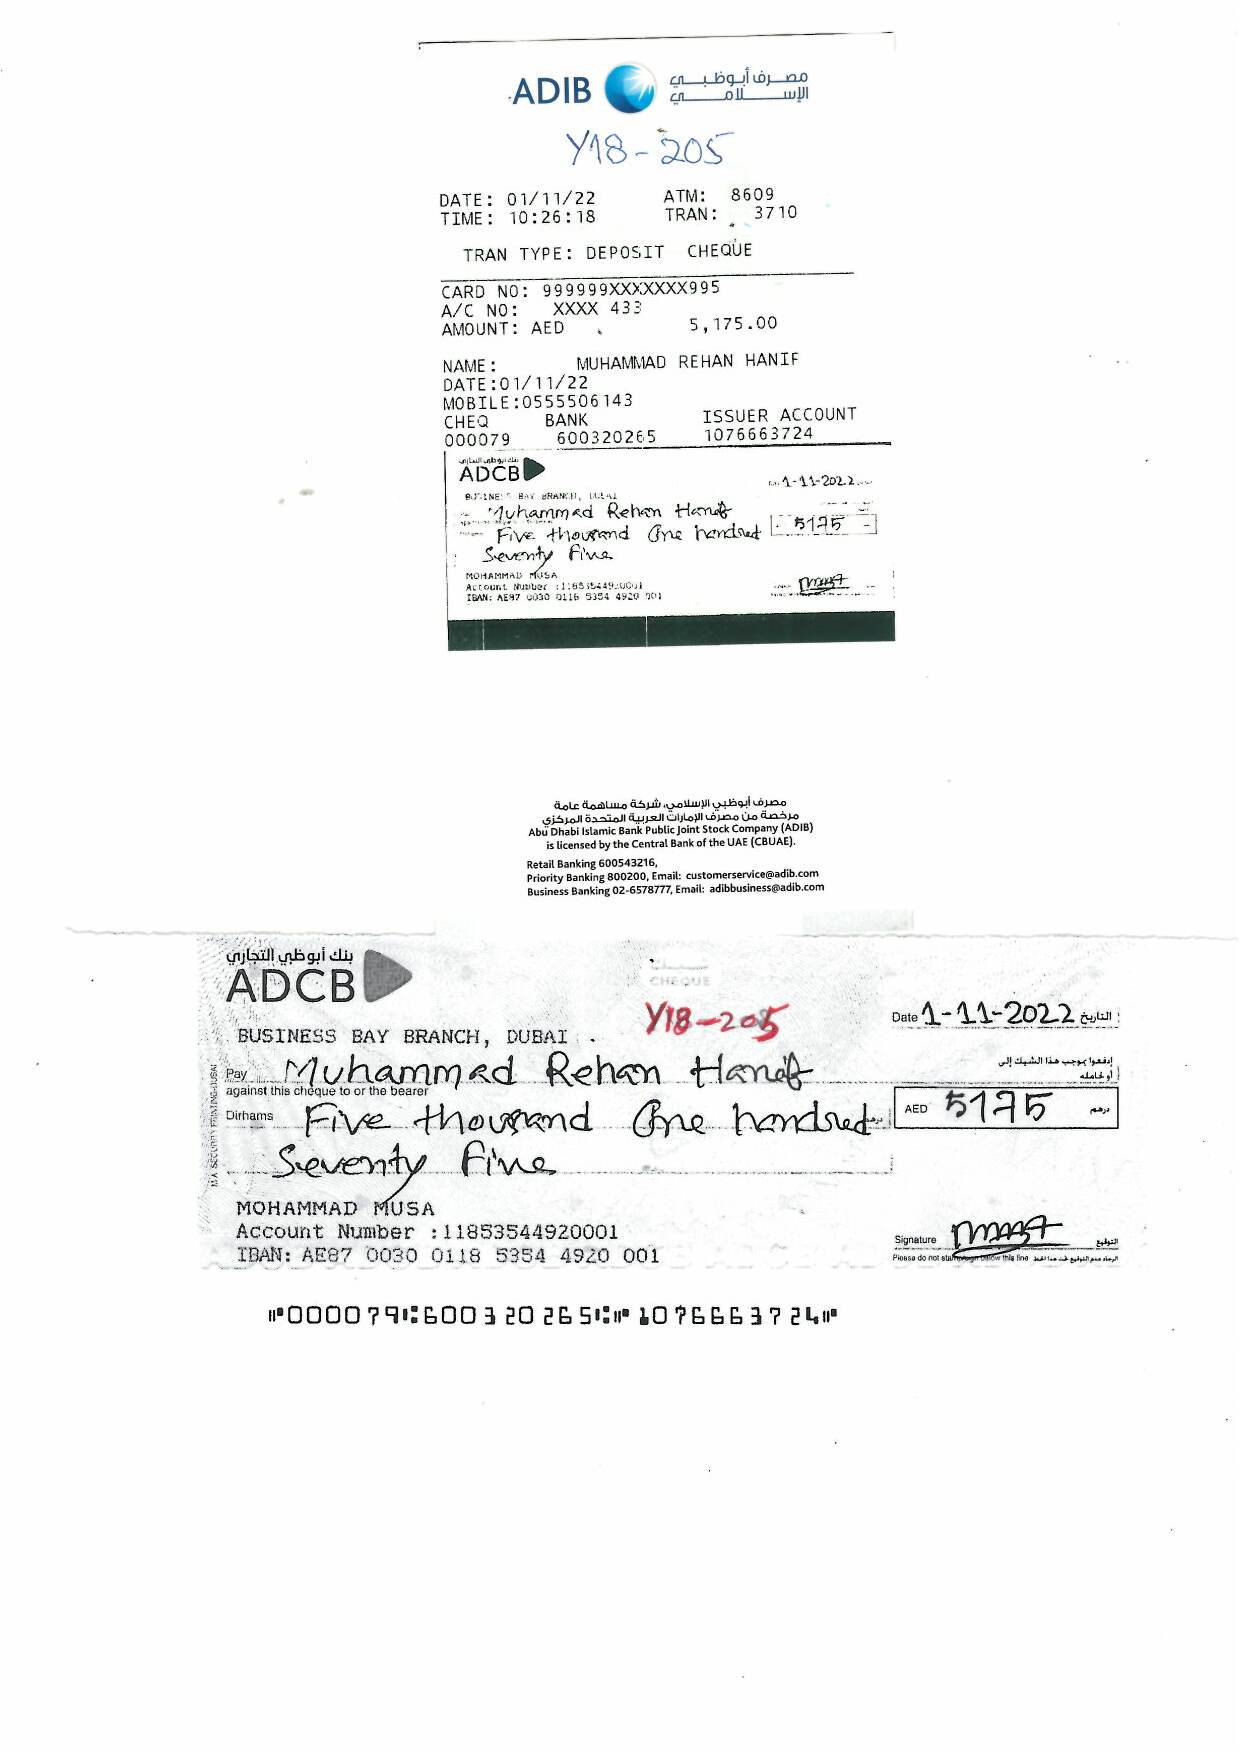 ADIB مصرف أبوظبي
الإسلامي
Y18-205
DATE: 01/11/22 ATM: 8609
TIME: 10:26:18 TRAN: 3710
TRAN TYPE: DEPOSIT CHEQUE
CARD NO: 999999XXXXXXX995
A/C NO: XXXX 433
AMOUNT: AED 5,175.00
NAME: MUHAMMAD REHAN HANIF
DATE:01/11/22
MOBILE:0555506143
CHEQ BANK ISSUER ACCOUNT
000079 600320265 1076663724
بنك أبوظبي التجاري
ADCB
1-11-2022
BUSINESS BAY BRANCH, DUBAI
Muhammed Rehan Hanif
Five thousand One hundred 5175
Seventy Five
MOHAMMAD MUSA
Account Number :11853544920001
IBAN: AE87 0030 0118 5354 4920 001
مصرف أبوظبي الإسلامي، شركة مساهمة عامة
مرخصة من مصرف الإمارات العربية المتحدة المركزي
Abu Dhabi Islamic Bank Public Joint Stock Company (ADIB)
is licensed by the Central Bank of the UAE (CBUAE).
Retail Banking 600543216,
Priority Banking 800200, Email: customerservice@adib.com
Business Banking 02-6578777, Email: adibbusiness@adib.com
بنك أبوظبي التجاري
ADCB
CHEQUE
Y18-205
Date 1-11-2022 التاريخ
BUSINESS BAY BRANCH, DUBAI
Pay Muhammed Rehan Hanif إدفعوا بموجب هذا الشيك إلى
against this cheque to or the bearer أو لحامله
Dirhams Five thousand One hundred درهم AED 5175 درهم
Seventy Five
MOHAMMAD MUSA
Account Number :11853544920001
IBAN: AE87 0030 0118 5354 4920 001
Signature التوقيع
Please do not stamp/sign below this line
⑈000079⑆600320265⑆⑈1076663724⑈